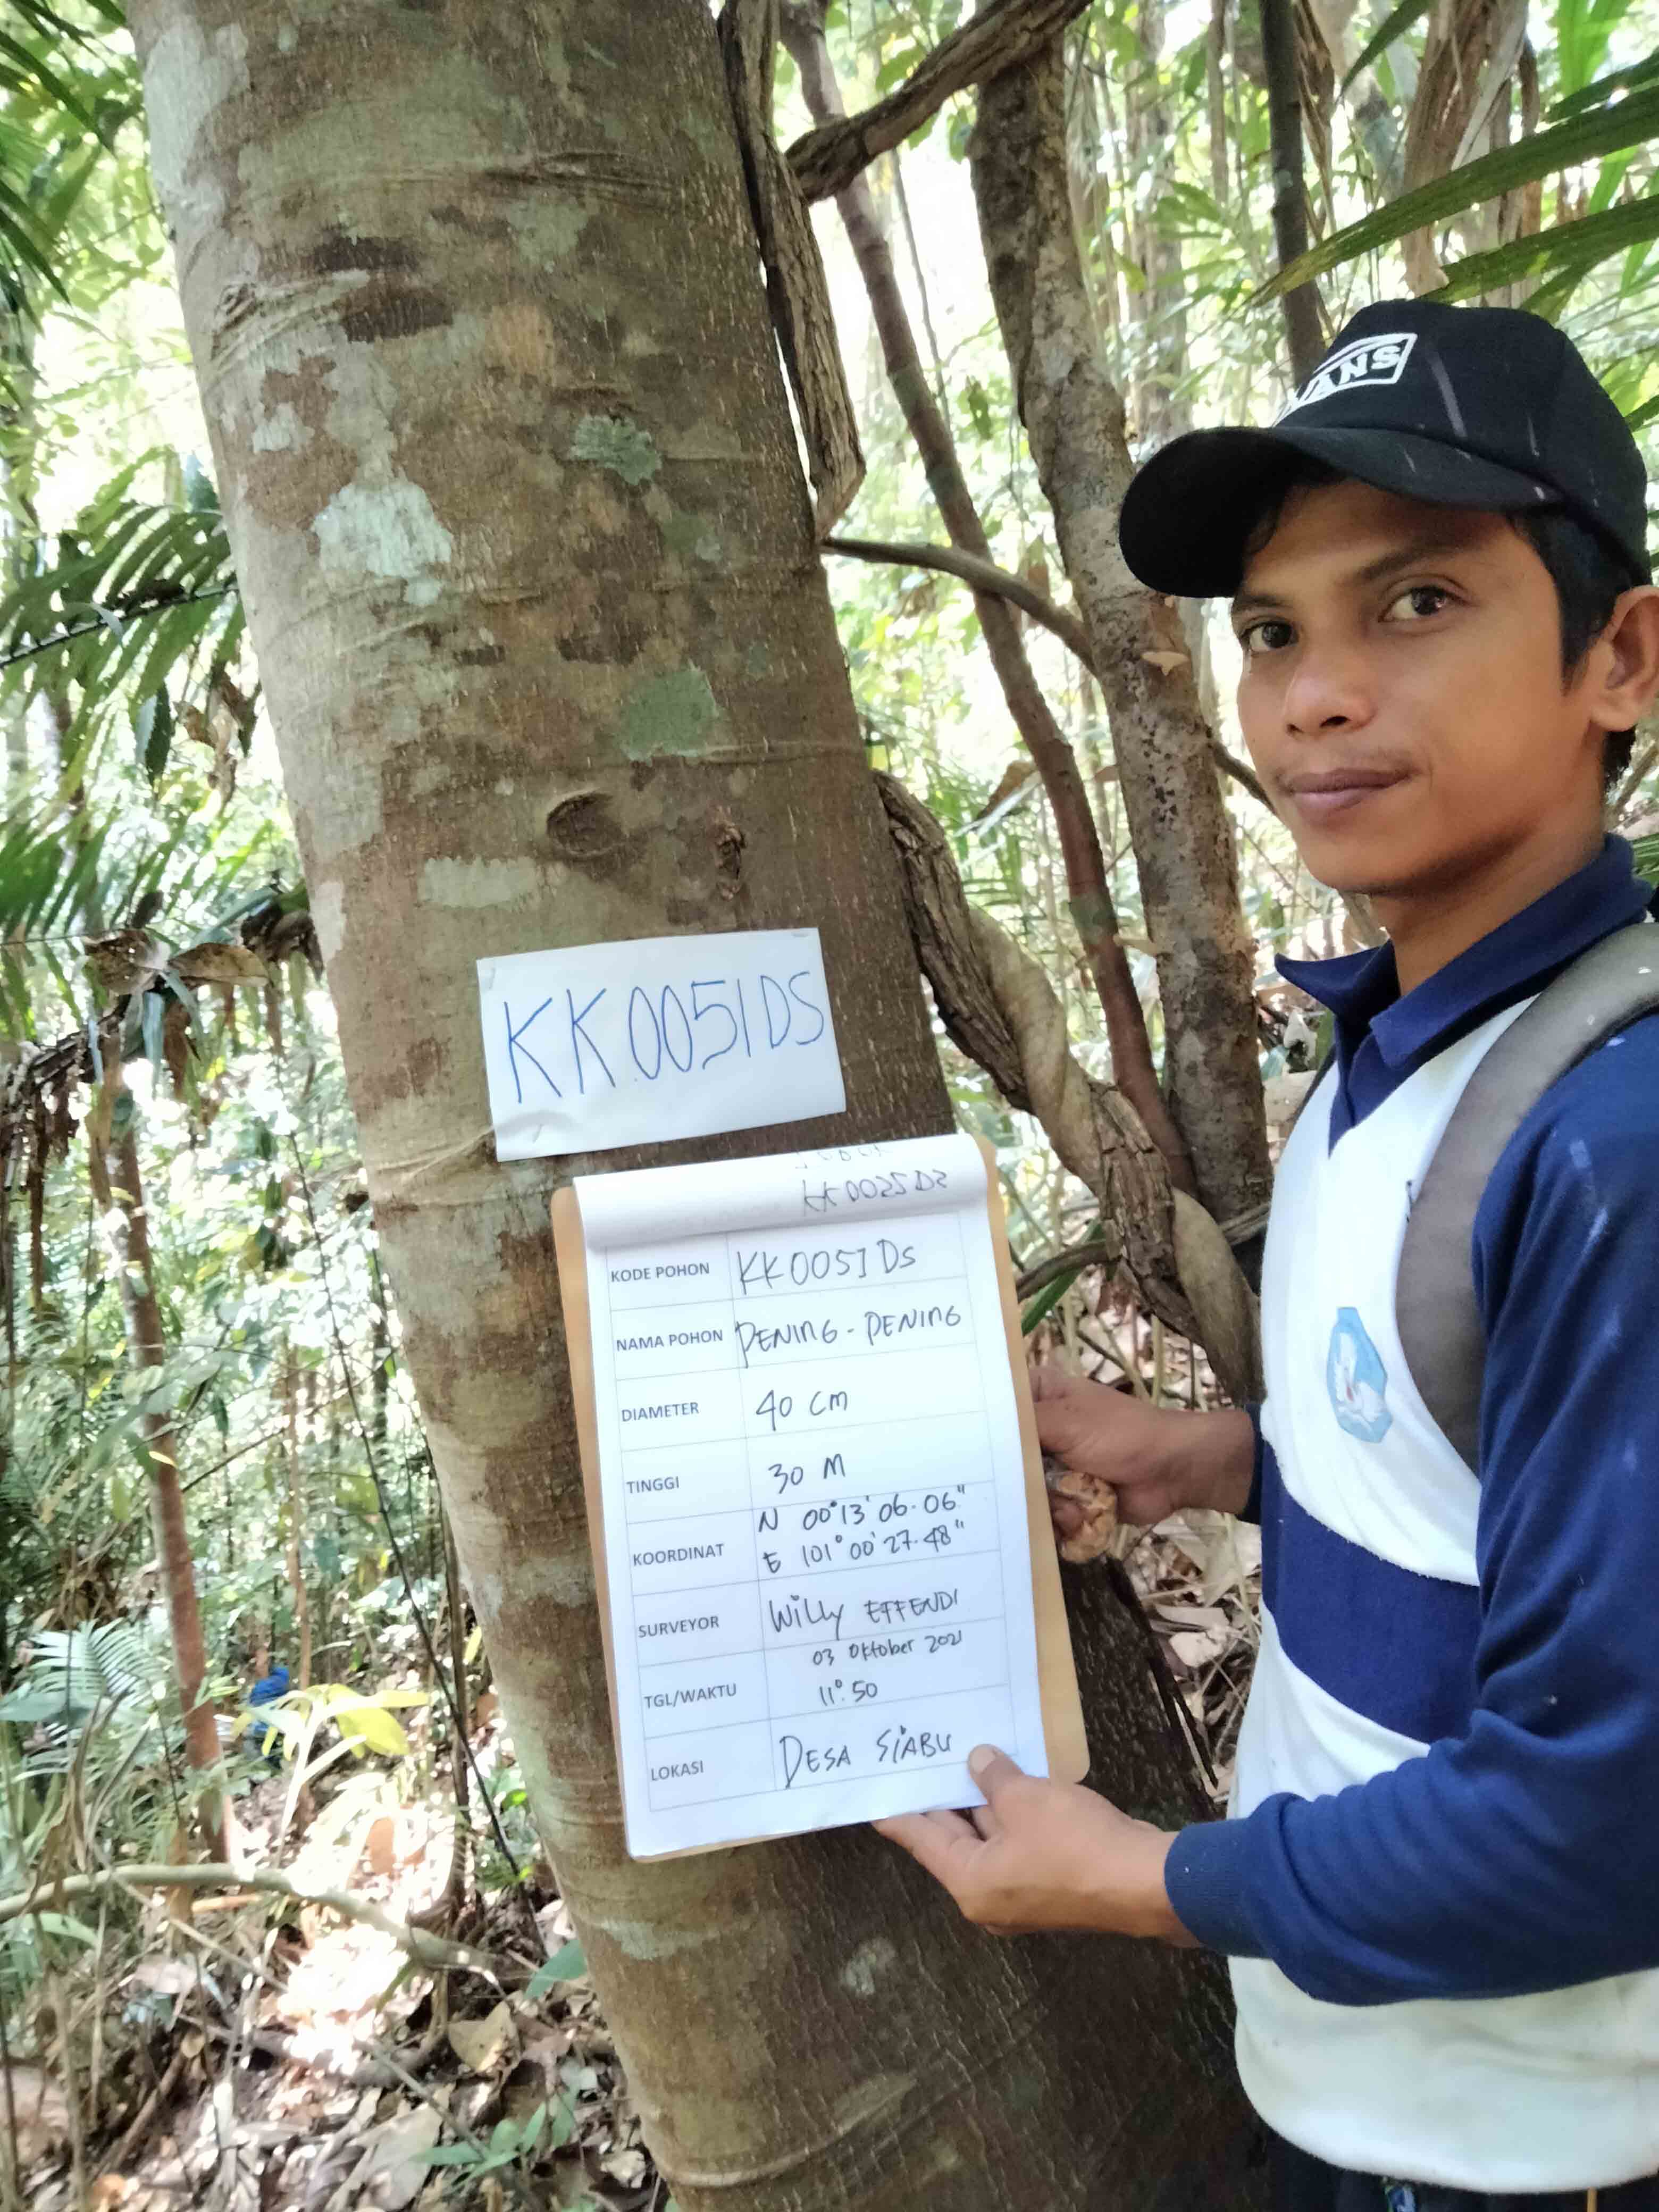 VANS
KK0051DS
KK0025DS
KODE POHON KK0051DS
NAMA POHON PENING-PENING
DIAMETER 40 cm
TINGGI 30 M
KOORDINAT N 00°13'06.06"
E 101°00'27.48"
SURVEYOR WILLY EFFENDI
TGL/WAKTU 03 Oktober 2021
11°.50
LOKASI DESA SIABU